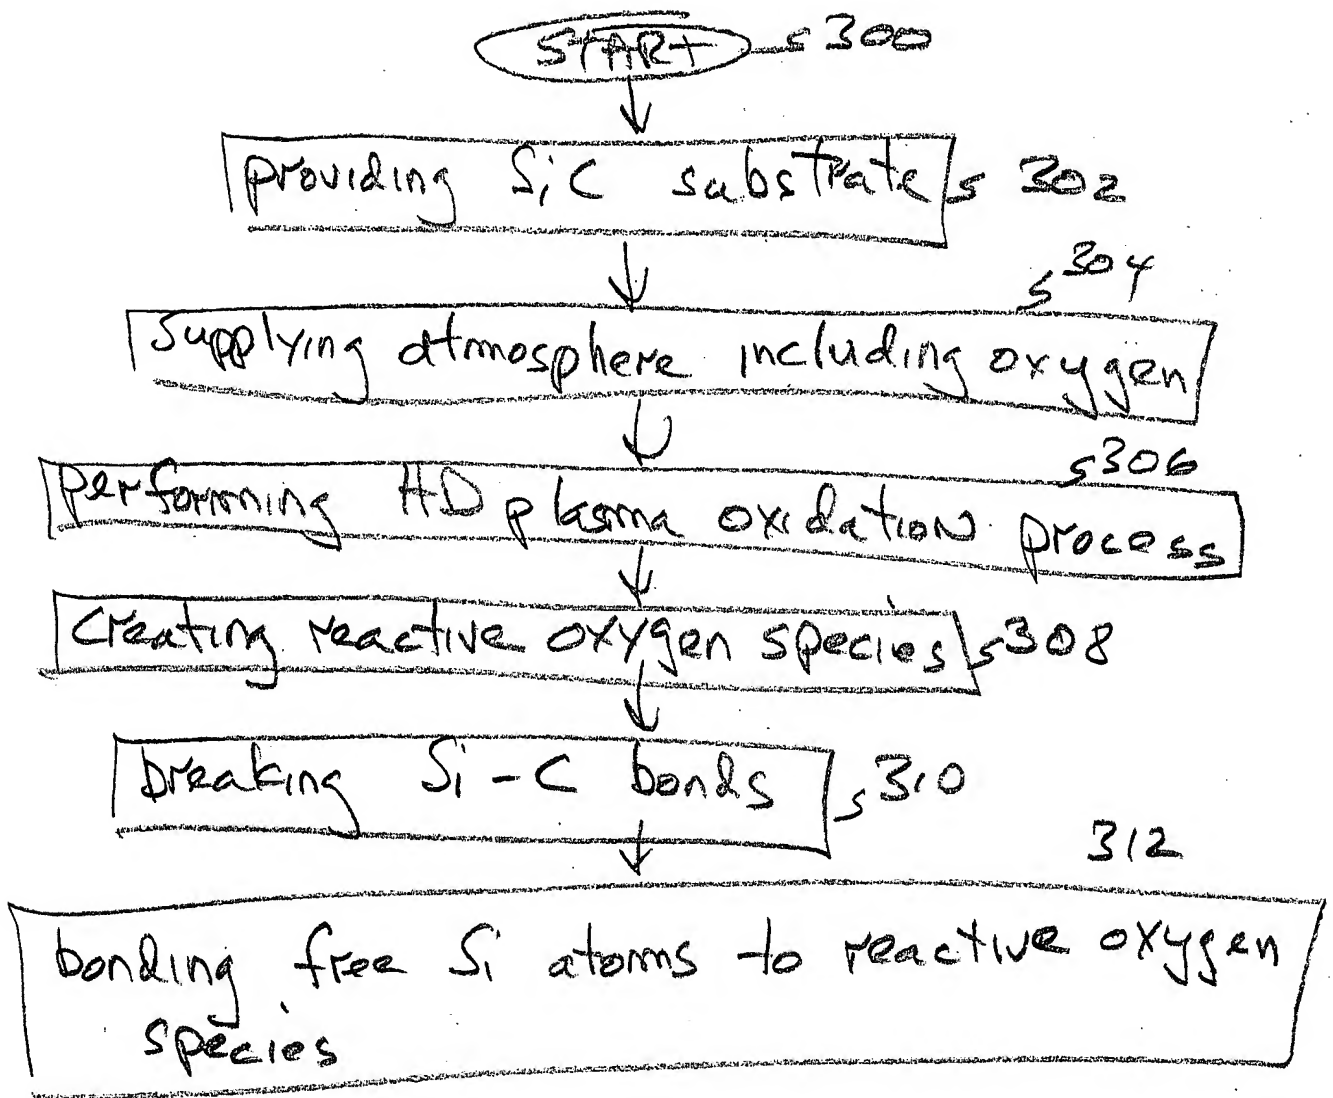 START 300
providing SiC substrate 302
304
supplying atmosphere including oxygen
306
performing HD plasma oxidation process
creating reactive oxygen species 308
breaking Si-C bonds 310
312
bonding free Si atoms to reactive oxygen
species